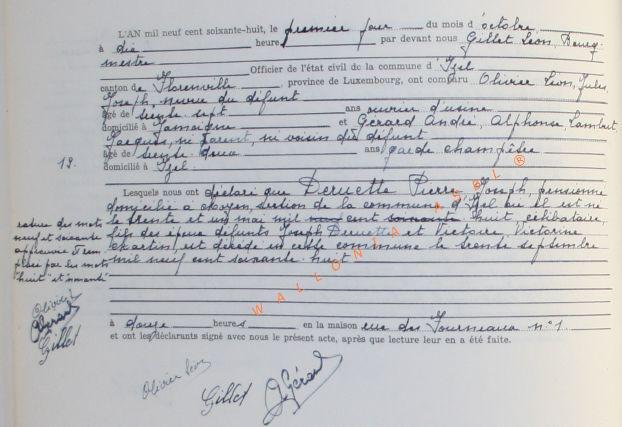 L'AN mil neuf cent soixante-huit, le premier jour du mois d'octobre,
à dix heures par devant nous Gillet Léon, Bourg-
mestre Officier de l'état civil de la commune d'Izel
canton de Florenville, province de Luxembourg, ont comparu Olivier Léon, Jules,
Joseph, neveu du défunt
âgé de trente sept ans ouvrier d'usine
domicilié à Jamoigne et Gérard André, Alphonse Lambert,
Jacques, ni parent, ni voisin du défunt
âgé de trente deux ans garde champêtre
domicilié à Izel.
12.
Lesquels nous ont déclaré que Deruette Pierre, Joseph, pensionné
domicilié à section de la commune d'Izel où il est né
le trente et un mai mil cent soixante huit, célibataire,
fils des époux défunts Joseph Deruette et Victoire, Victorine
Martin, est décédé en cette commune le trente septembre
mil neuf cent soixante-huit
rature des mots
neuf et soixante
approuvée
placé par les mots
"huit" et
Olivier
Gérard
Gillet
à douze heures en la maison rue des Fourneaux n° 1
et ont les déclarants signé avec nous le présent acte, après que lecture leur en a été faite.
Olivier Léon
Gillet
Gérard
WALLONIA ASBL ®